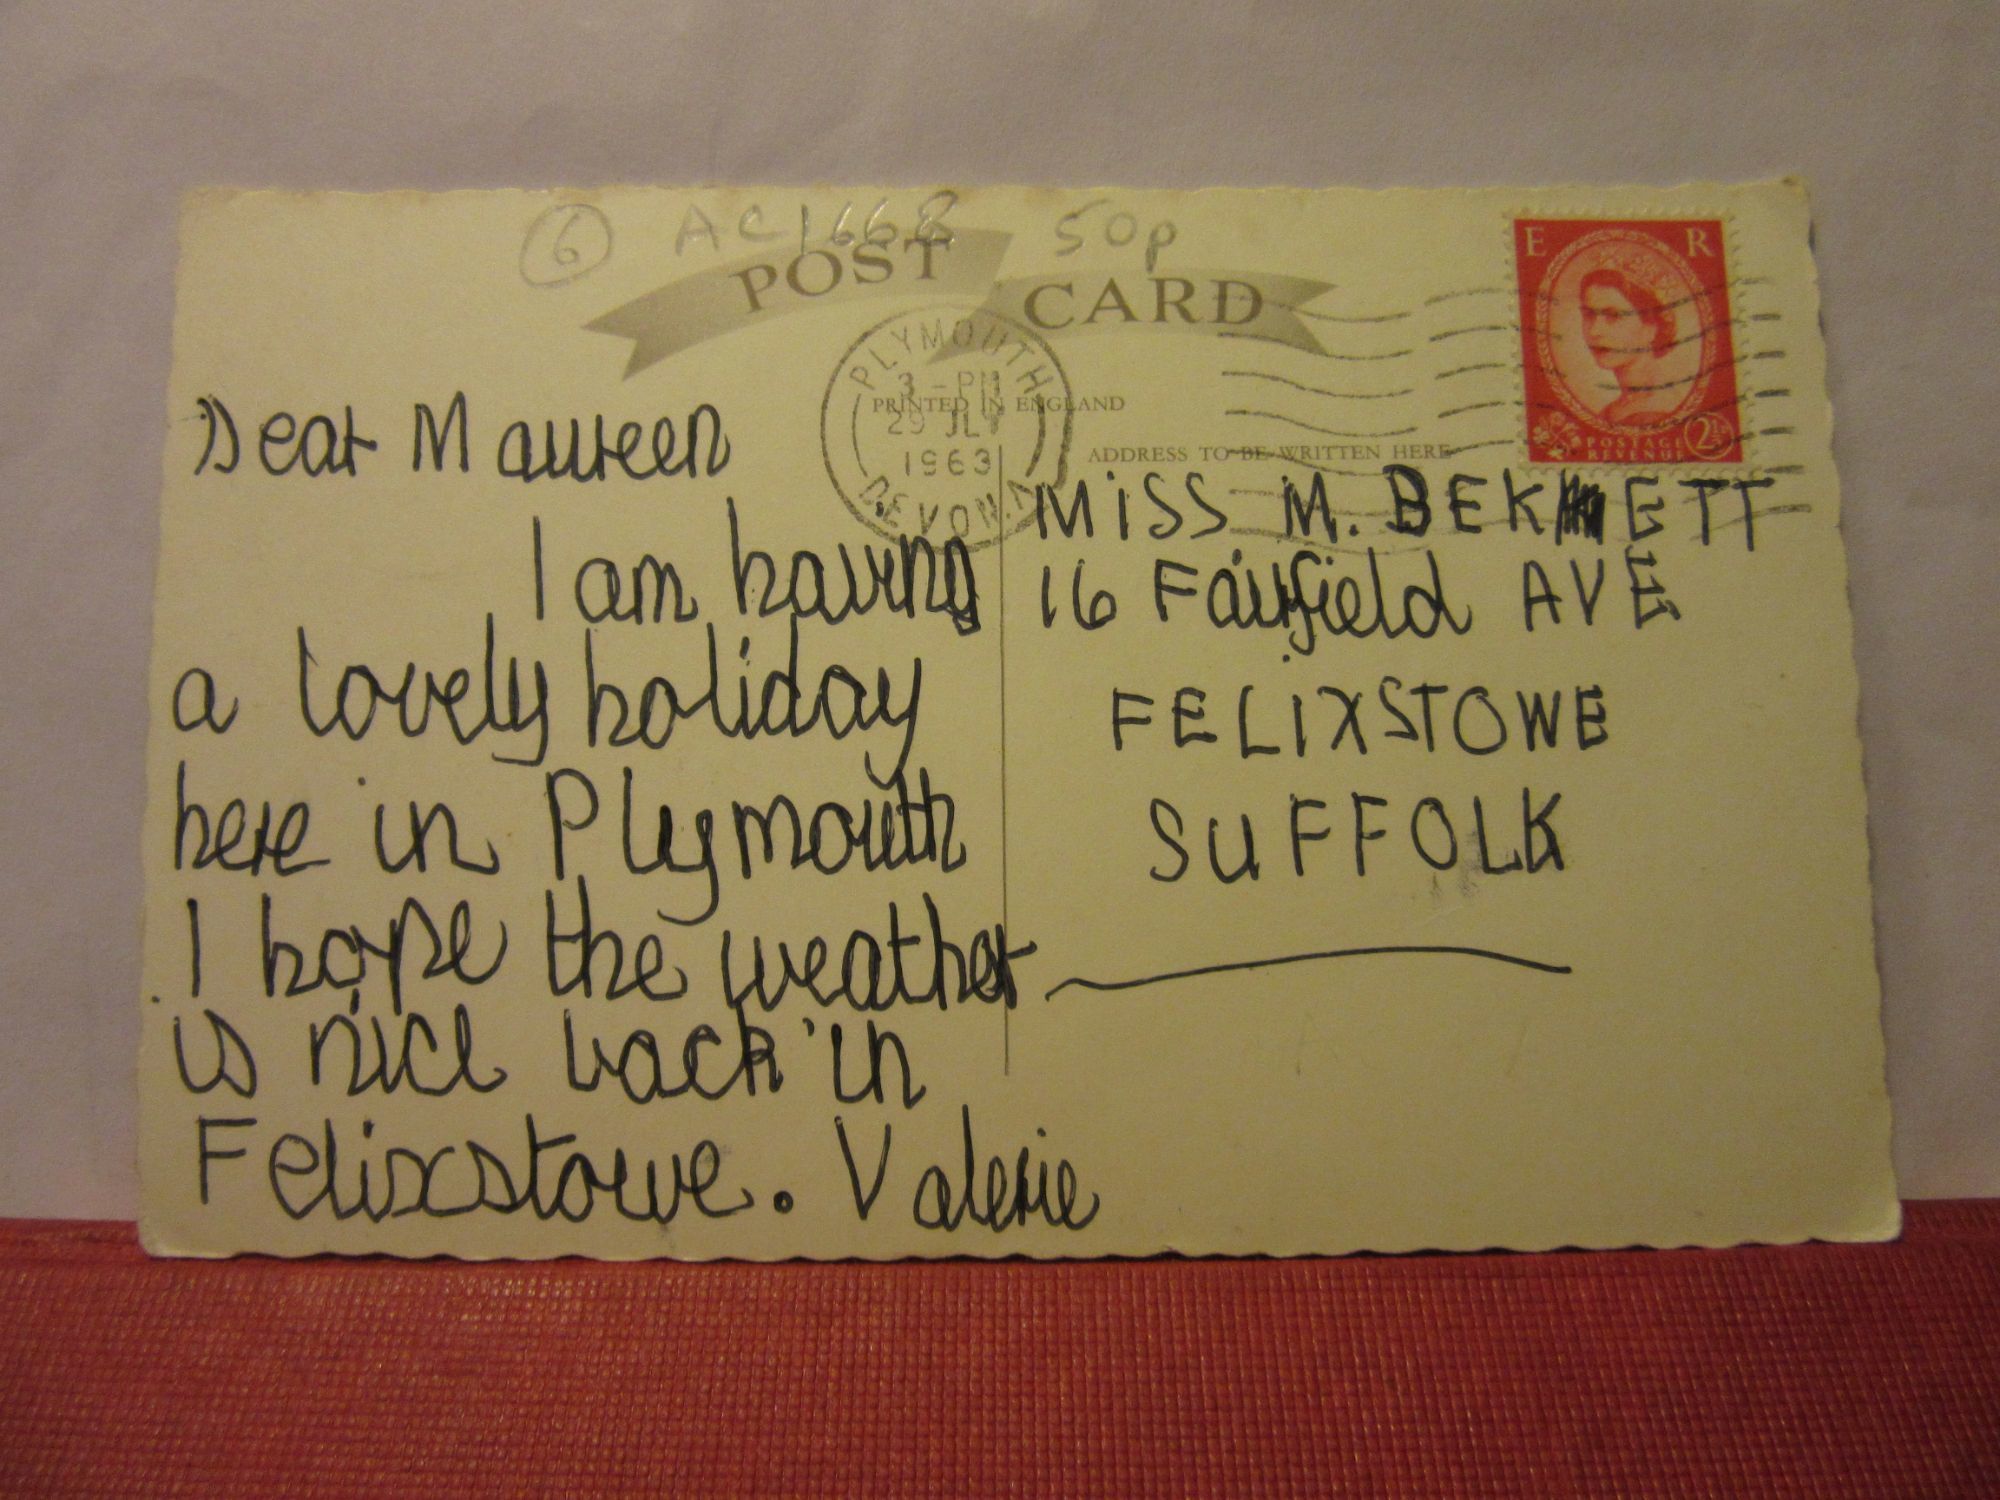 6 AC1668 50p
POST CARD
PLYMOUTH
3 - PM
29 JLY
1963
DEVON.A
PRINTED IN ENGLAND
ADDRESS TO BE WRITTEN HERE
E R
POSTAGE
REVENUE
2½
Dear Maureen
I am having
a lovely holiday
here in Plymouth
I hope the weather
is nice back in
Felixstowe. Valerie
MiSS M. BEKETT
16 Fairfield AVE
FELiXSTOWE
SUFFOLK